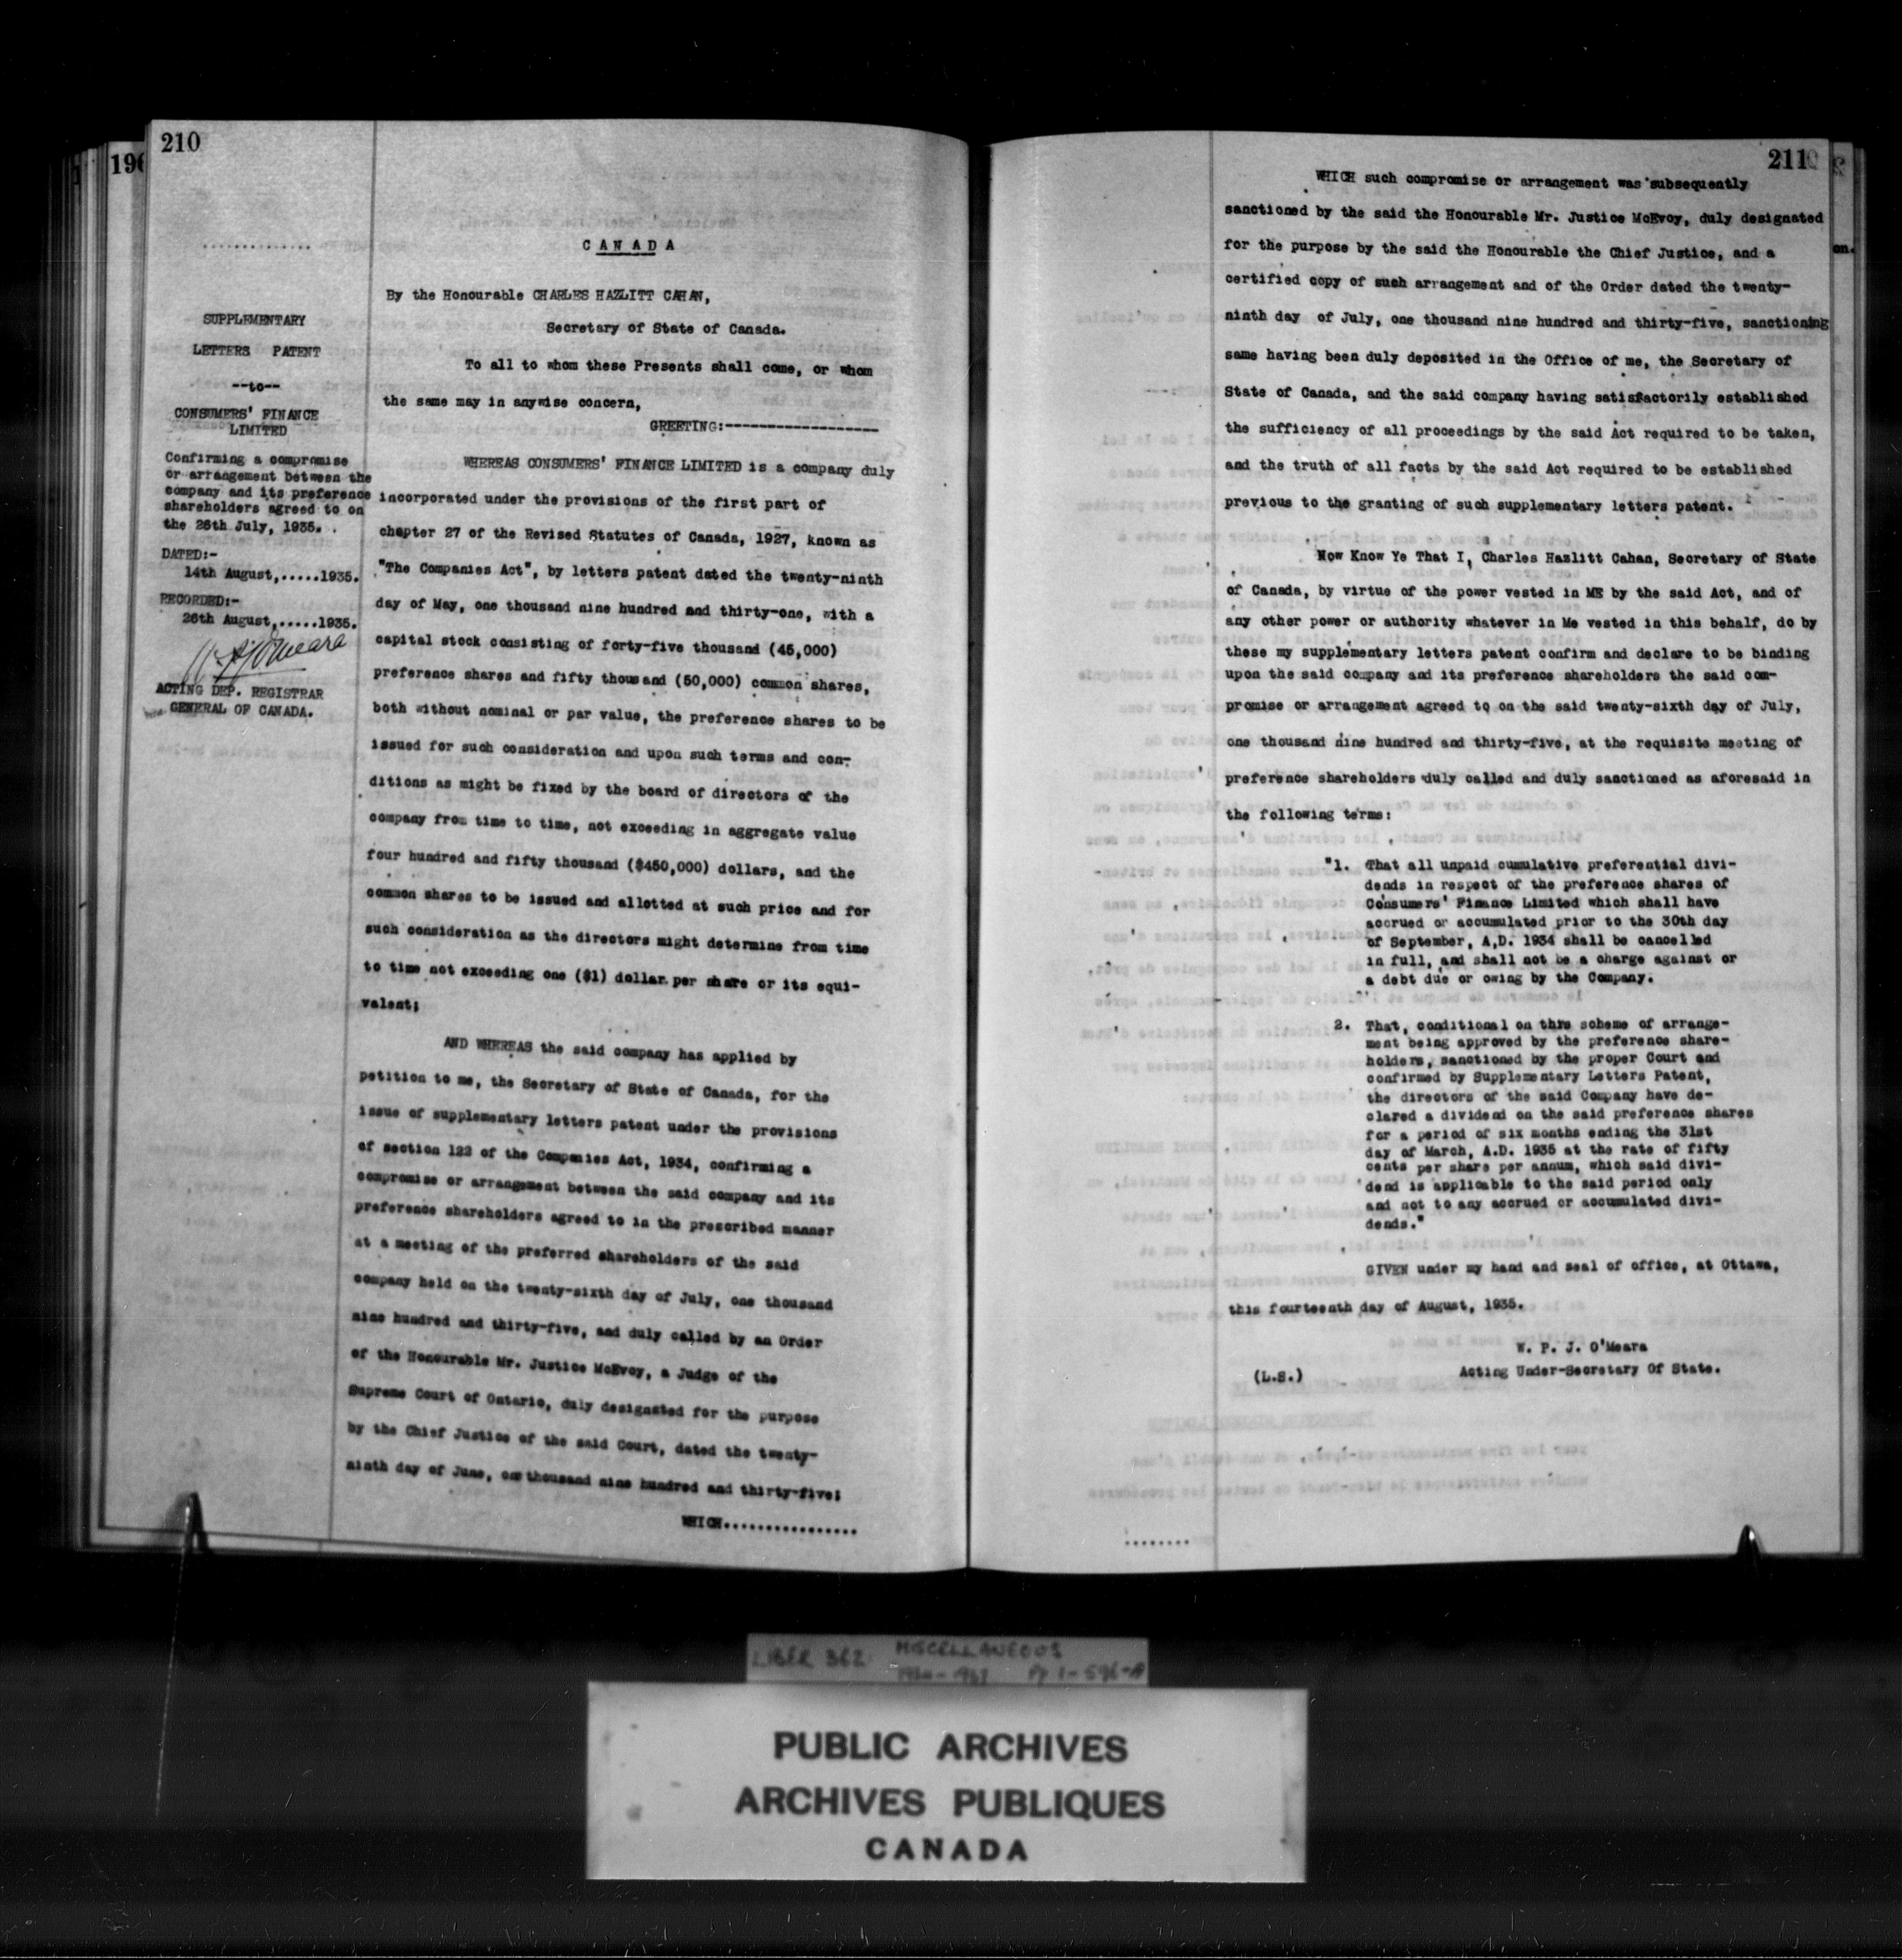 210
196
..............
SUPPLEMENTARY
LETTERS PATENT
--to--
CONSUMERS' FINANCE
LIMITED
Confirming a compromise
or arrangement between the
company and its preference
shareholders agreed to on
the 26th July, 1935.
DATED:-
14th August,.....1935.
RECORDED:-
26th August,.....1935.
W.P.J. O'Meara
ACTING DEP. REGISTRAR
GENERAL OF CANADA.
CANADA
By the Honourable CHARLES HAZLITT CAHAN,
Secretary of State of Canada.
To all to whom these Presents shall come, or whom
the same may in anywise concern,
GREETING:------------------
WHEREAS CONSUMERS' FINANCE LIMITED is a company duly
incorporated under the provisions of the first part of
chapter 27 of the Revised Statutes of Canada, 1927, known as
"The Companies Act", by letters patent dated the twenty-ninth
day of May, one thousand nine hundred and thirty-one, with a
capital stock consisting of forty-five thousand (45,000)
preference shares and fifty thousand (50,000) common shares,
both without nominal or par value, the preference shares to be
issued for such consideration and upon such terms and con-
ditions as might be fixed by the board of directors of the
company from time to time, not exceeding in aggregate value
four hundred and fifty thousand ($450,000) dollars, and the
common shares to be issued and allotted at such price and for
such consideration as the directors might determine from time
to time not exceeding one ($1) dollar per share or its equi-
valent;
AND WHEREAS the said company has applied by
petition to me, the Secretary of State of Canada, for the
issue of supplementary letters patent under the provisions
of section 122 of the Companies Act, 1934, confirming a
compromise or arrangement between the said company and its
preference shareholders agreed to in the prescribed manner
at a meeting of the preferred shareholders of the said
company held on the twenty-sixth day of July, one thousand
nine hundred and thirty-five, and duly called by an Order
of the Honourable Mr. Justice McEvoy, a Judge of the
Supreme Court of Ontario, duly designated for the purpose
by the Chief Justice of the said Court, dated the twenty-
ninth day of June, one thousand nine hundred and thirty-five;
WHICH................
211
WHICH such compromise or arrangement was subsequently
sanctioned by the said the Honourable Mr. Justice McEvoy, duly designated
for the purpose by the said the Honourable the Chief Justice, and a
certified copy of such arrangement and of the Order dated the twenty-
ninth day of July, one thousand nine hundred and thirty-five, sanctioning
same having been duly deposited in the Office of me, the Secretary of
State of Canada, and the said company having satisfactorily established
the sufficiency of all proceedings by the said Act required to be taken,
and the truth of all facts by the said Act required to be established
previous to the granting of such supplementary letters patent.
Now Know Ye That I, Charles Hazlitt Cahan, Secretary of State
of Canada, by virtue of the power vested in ME by the said Act, and of
any other power or authority whatever in Me vested in this behalf, do by
these my supplementary letters patent confirm and declare to be binding
upon the said company and its preference shareholders the said com-
promise or arrangement agreed to on the said twenty-sixth day of July,
one thousand nine hundred and thirty-five, at the requisite meeting of
preference shareholders duly called and duly sanctioned as aforesaid in
the following terms:
"1. That all unpaid cumulative preferential divi-
dends in respect of the preference shares of
Consumers' Finance Limited which shall have
accrued or accumulated prior to the 30th day
of September, A.D. 1934 shall be cancelled
in full, and shall not be a charge against or
a debt due or owing by the Company.
2. That, conditional on this scheme of arrange-
ment being approved by the preference share-
holders, sanctioned by the proper Court and
confirmed by Supplementary Letters Patent,
the directors of the said Company have de-
clared a dividend on the said preference shares
for a period of six months ending the 31st
day of March, A.D. 1935 at the rate of fifty
cents per share per annum, which said divi-
dend is applicable to the said period only
and not to any accrued or accumulated divi-
dends."
GIVEN under my hand and seal of office, at Ottawa,
this fourteenth day of August, 1935.
W. P. J. O'Meara
(L.S.) Acting Under-Secretary Of State.
........
on.
LIBER 362 MISCELLANEOUS
Pp 1-596-A
PUBLIC ARCHIVES
ARCHIVES PUBLIQUES
CANADA